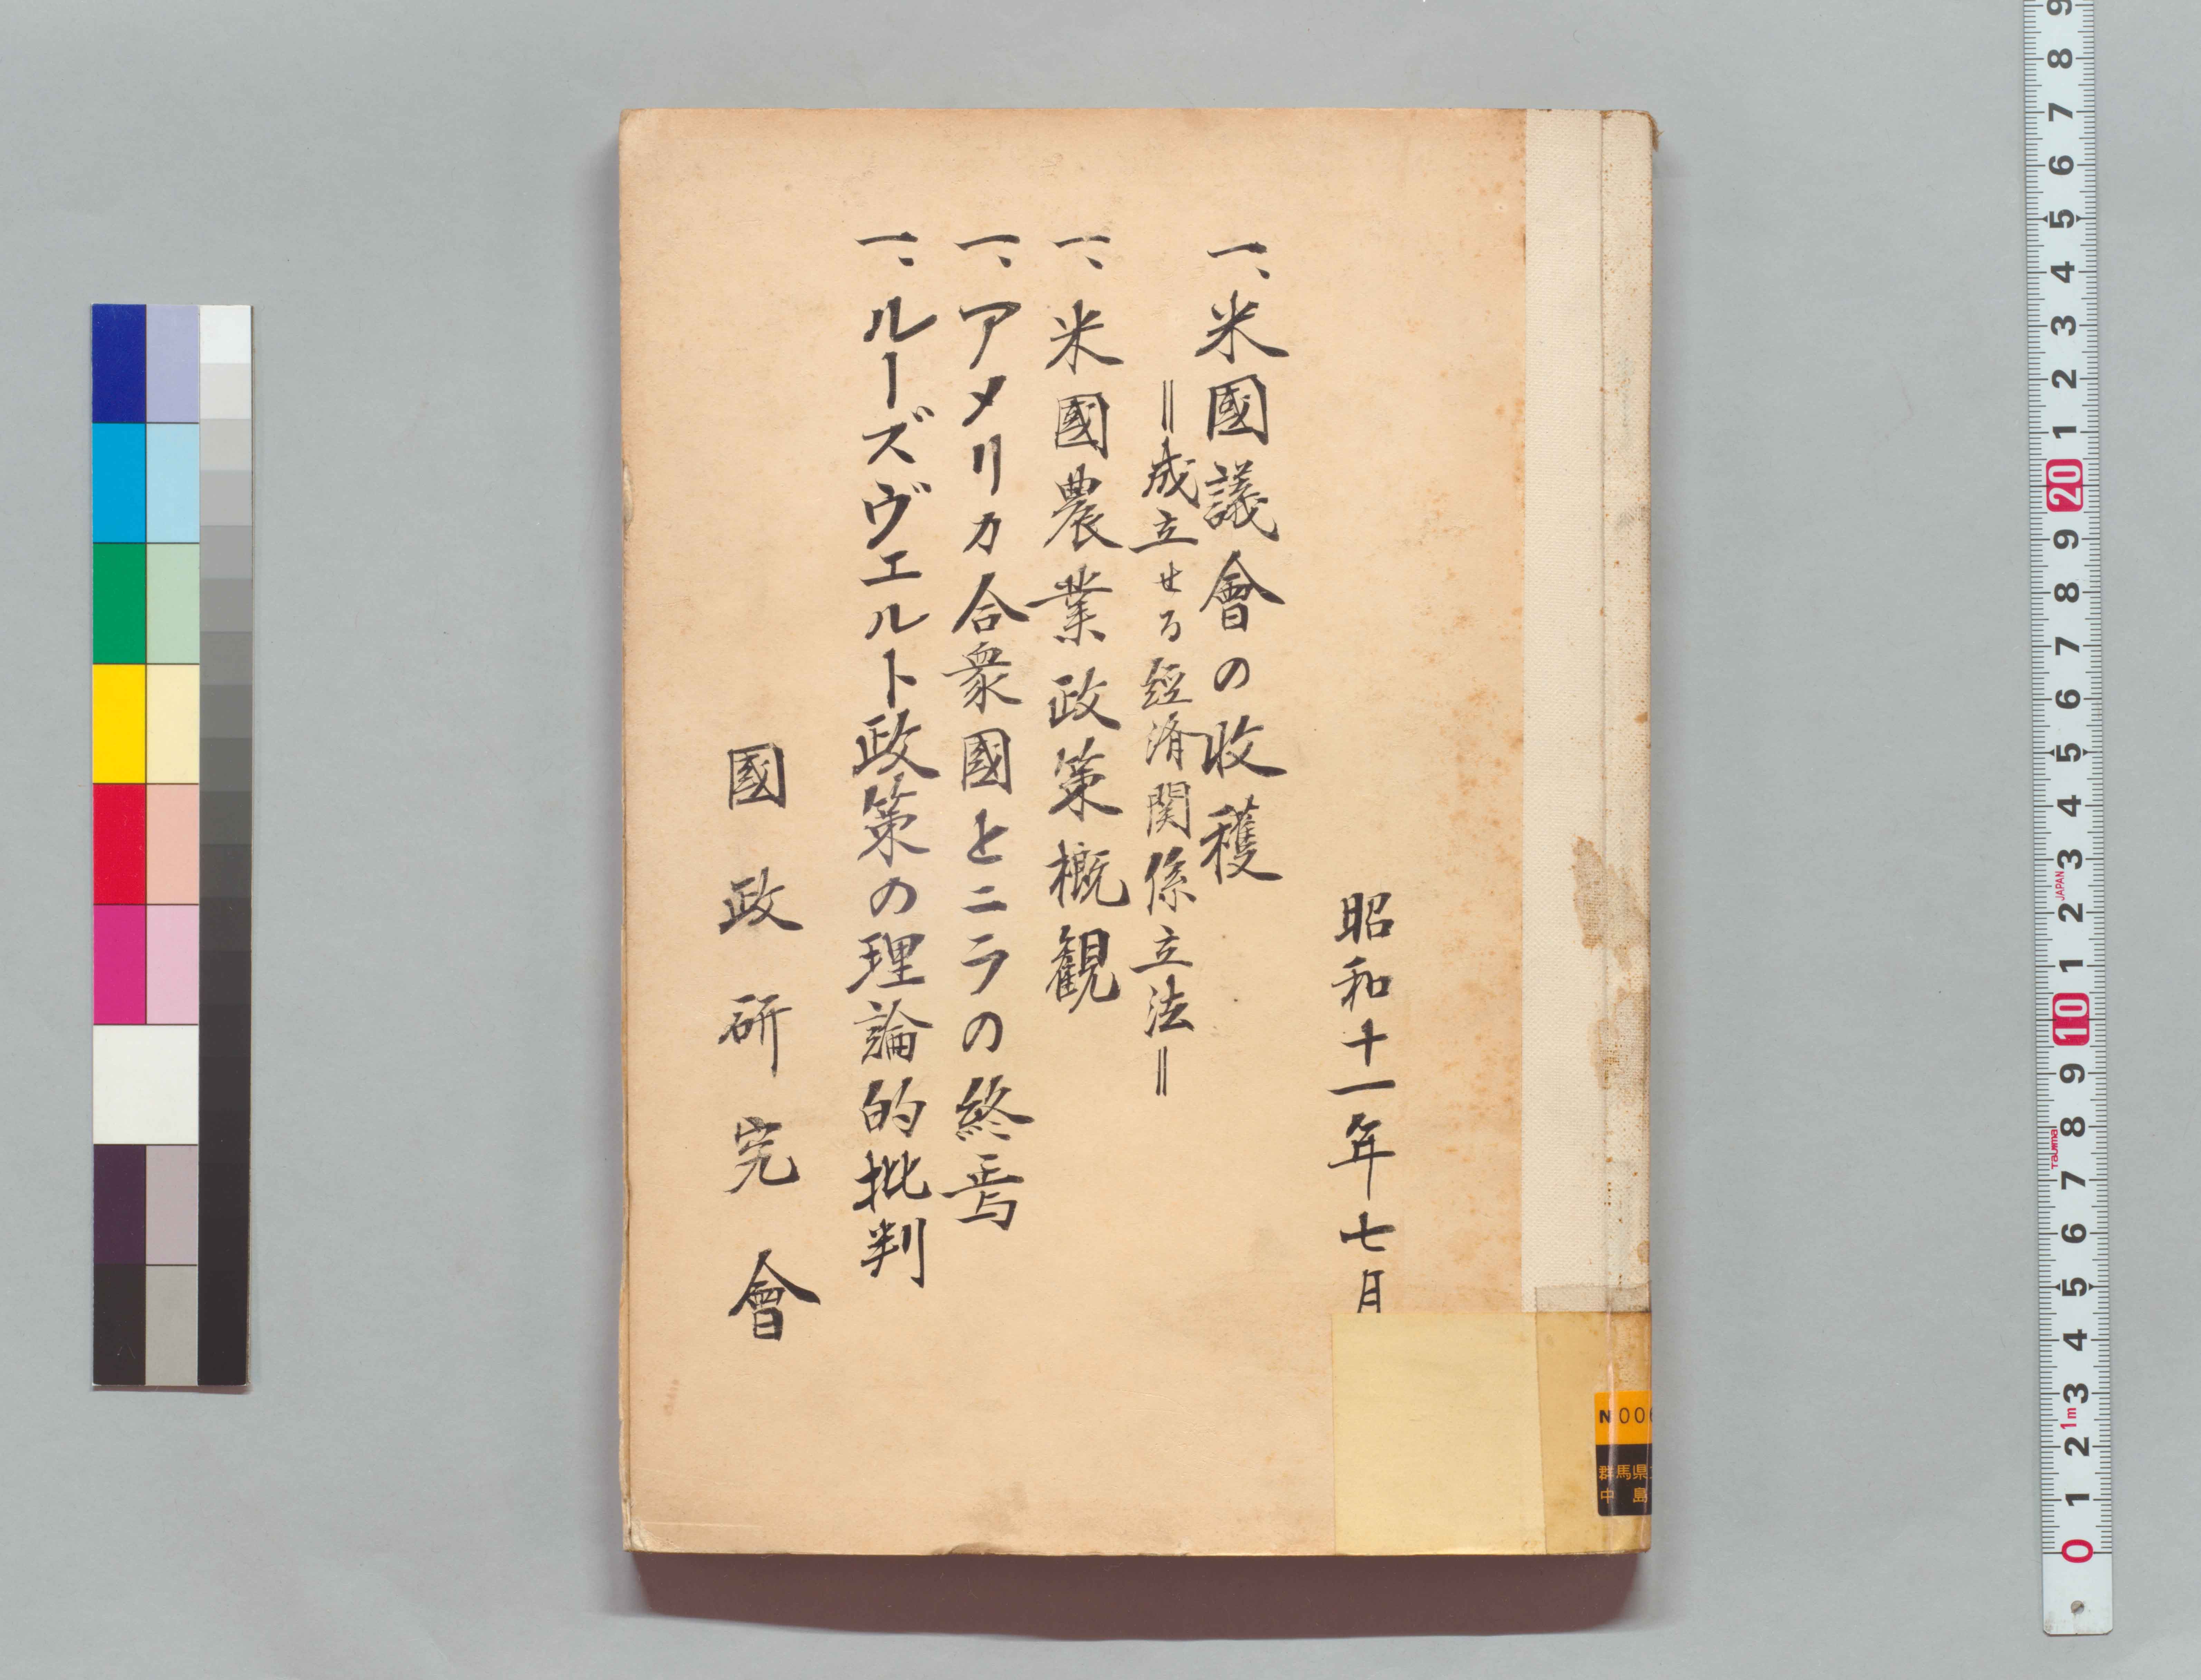 昭和十一年七月
一、米國議會の收穫
＝成立せる経済関係立法＝
一、米國農業政策概観
一、アメリカ合衆國とニラの終焉
一、ルーズヴェルト政策の理論的批判
國政研究會
N 00
群馬県
中島
9
8
7
6
5
4
3
2
1
20
9
8
7
6
5
4
3
JAPAN
2
1
10
9
8
Tajima
7
6
5
4
3
1m
2
1
0